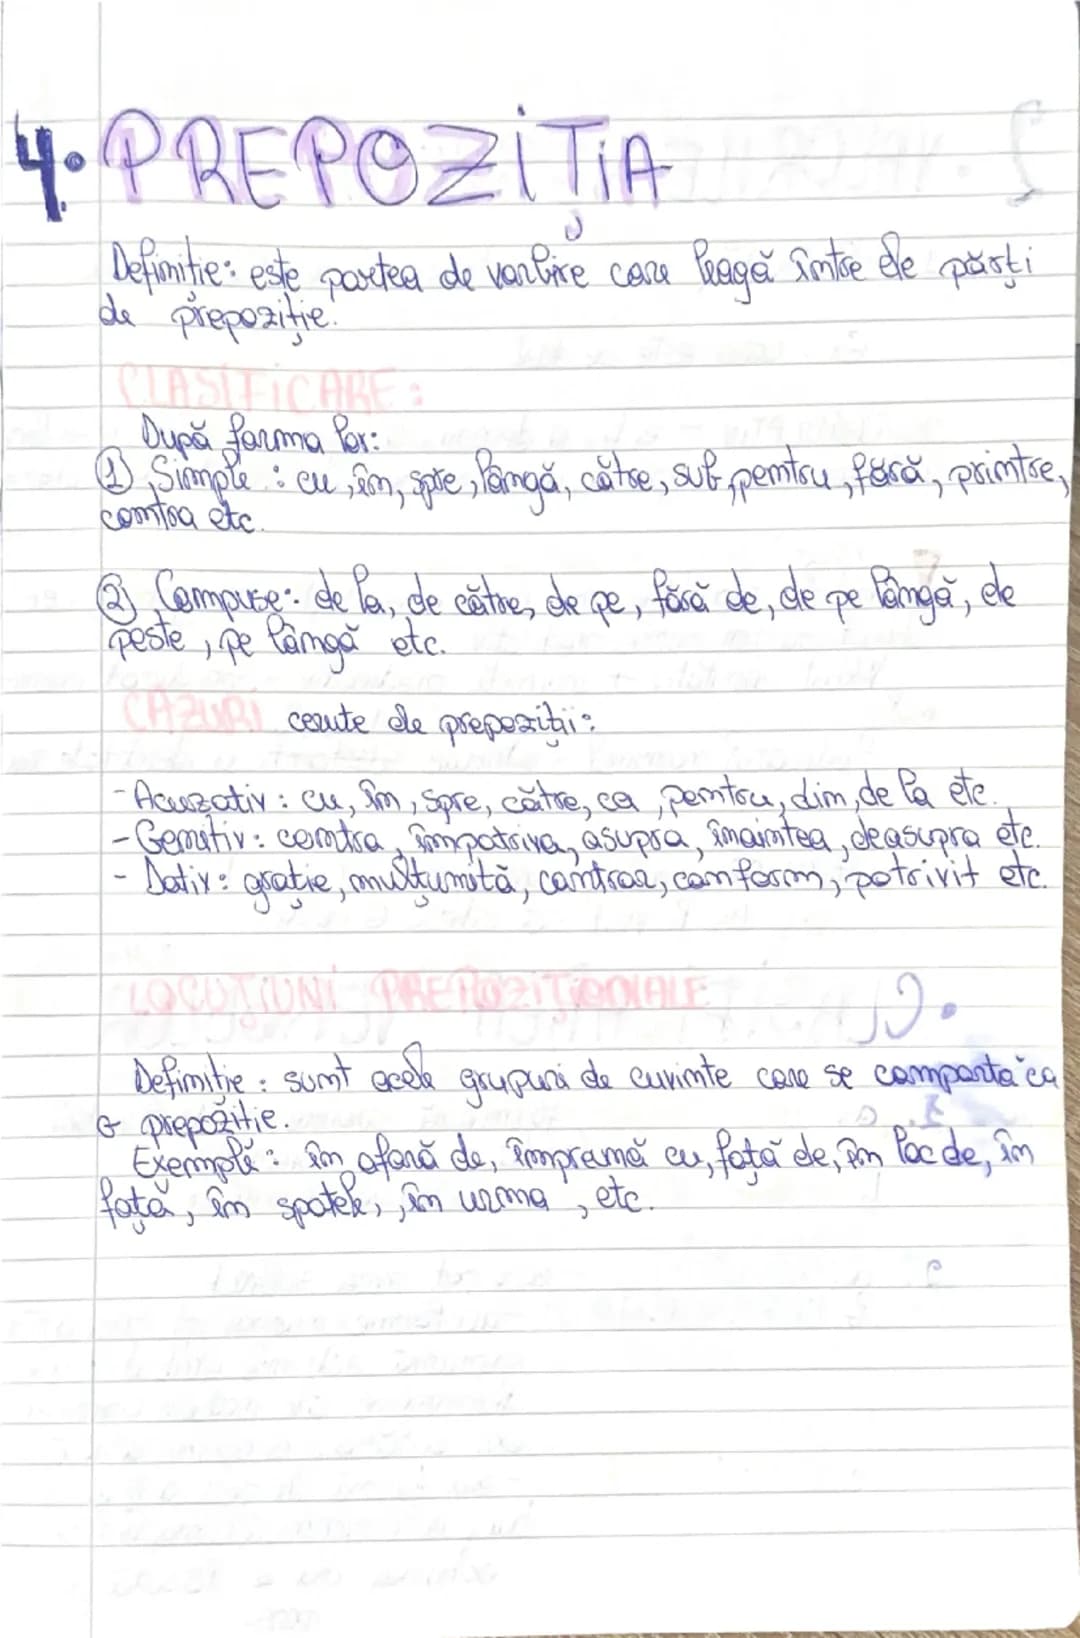 4. PREPOZIȚIA
Definiție: este partea de vorbire care leagă între ele părți
de prepoziție.
CLASIFICARE:
După forma lor:
① Simple: cu, în, spre, lângă, către, sub, pentru, fără, printre,
contra etc.
② Compuse: de la, de către, de pe, fără de, de pe lângă, de
peste, pe lângă etc.
CAZURI cerute de prepoziții:
- Acuzativ: cu, în, spre, către, ca, pentru, din, de la etc.
- Genitiv: contra, împotriva, asupra, înaintea, deasupra etc.
- Dativ: grație, mulțumită, contrar, conform, potrivit etc.
LOCUȚIUNI PREPOZIȚIONALE
Definiție: sunt acele grupuri de cuvinte care se comportă ca
o prepoziție.
Exemple: în afară de, împreună cu, față de, în loc de, în
fața, în spatele, în urma, etc.